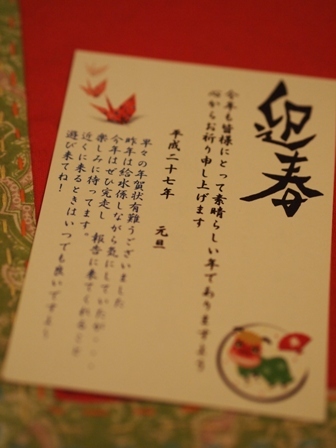 迎春
今年も皆様にとって素晴らしい年でありますよう
心からお祈り申し上げます
平成二十七年 元旦
早々の年賀状有難うございました
昨年は給水係しながら気にしていたが・・・
今年はぜひ完走し、報告に来てくれることを
楽しみに待ってます。
近くに来るときはいつでも良いですから
遊び来てね!